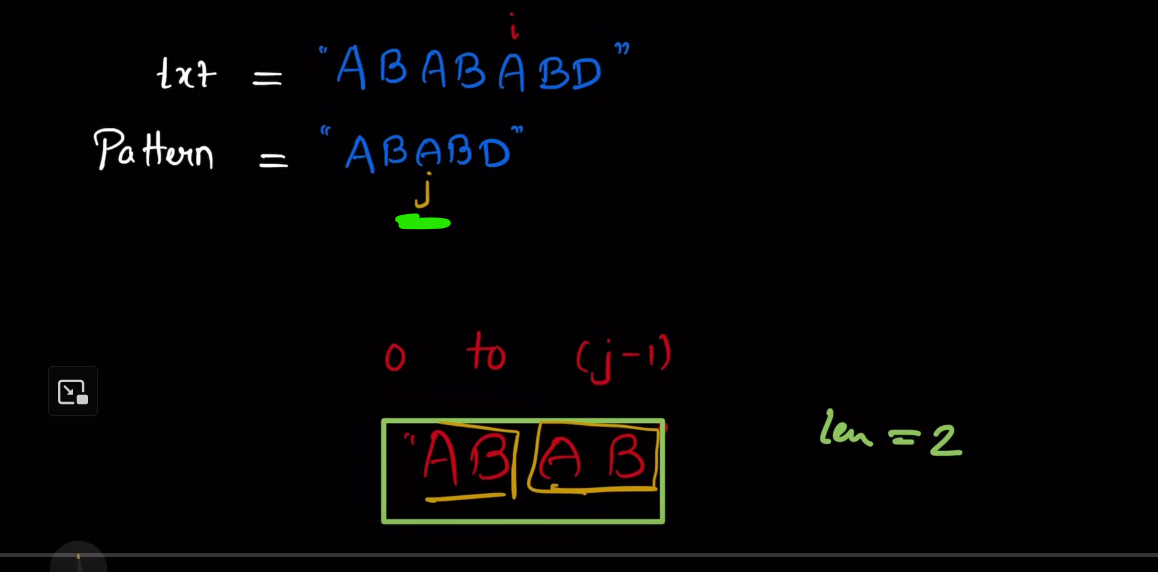 i
txt = "ABABABD"
Pattern = "ABABD"
j
0 to (j-1)
"AB AB"
len = 2